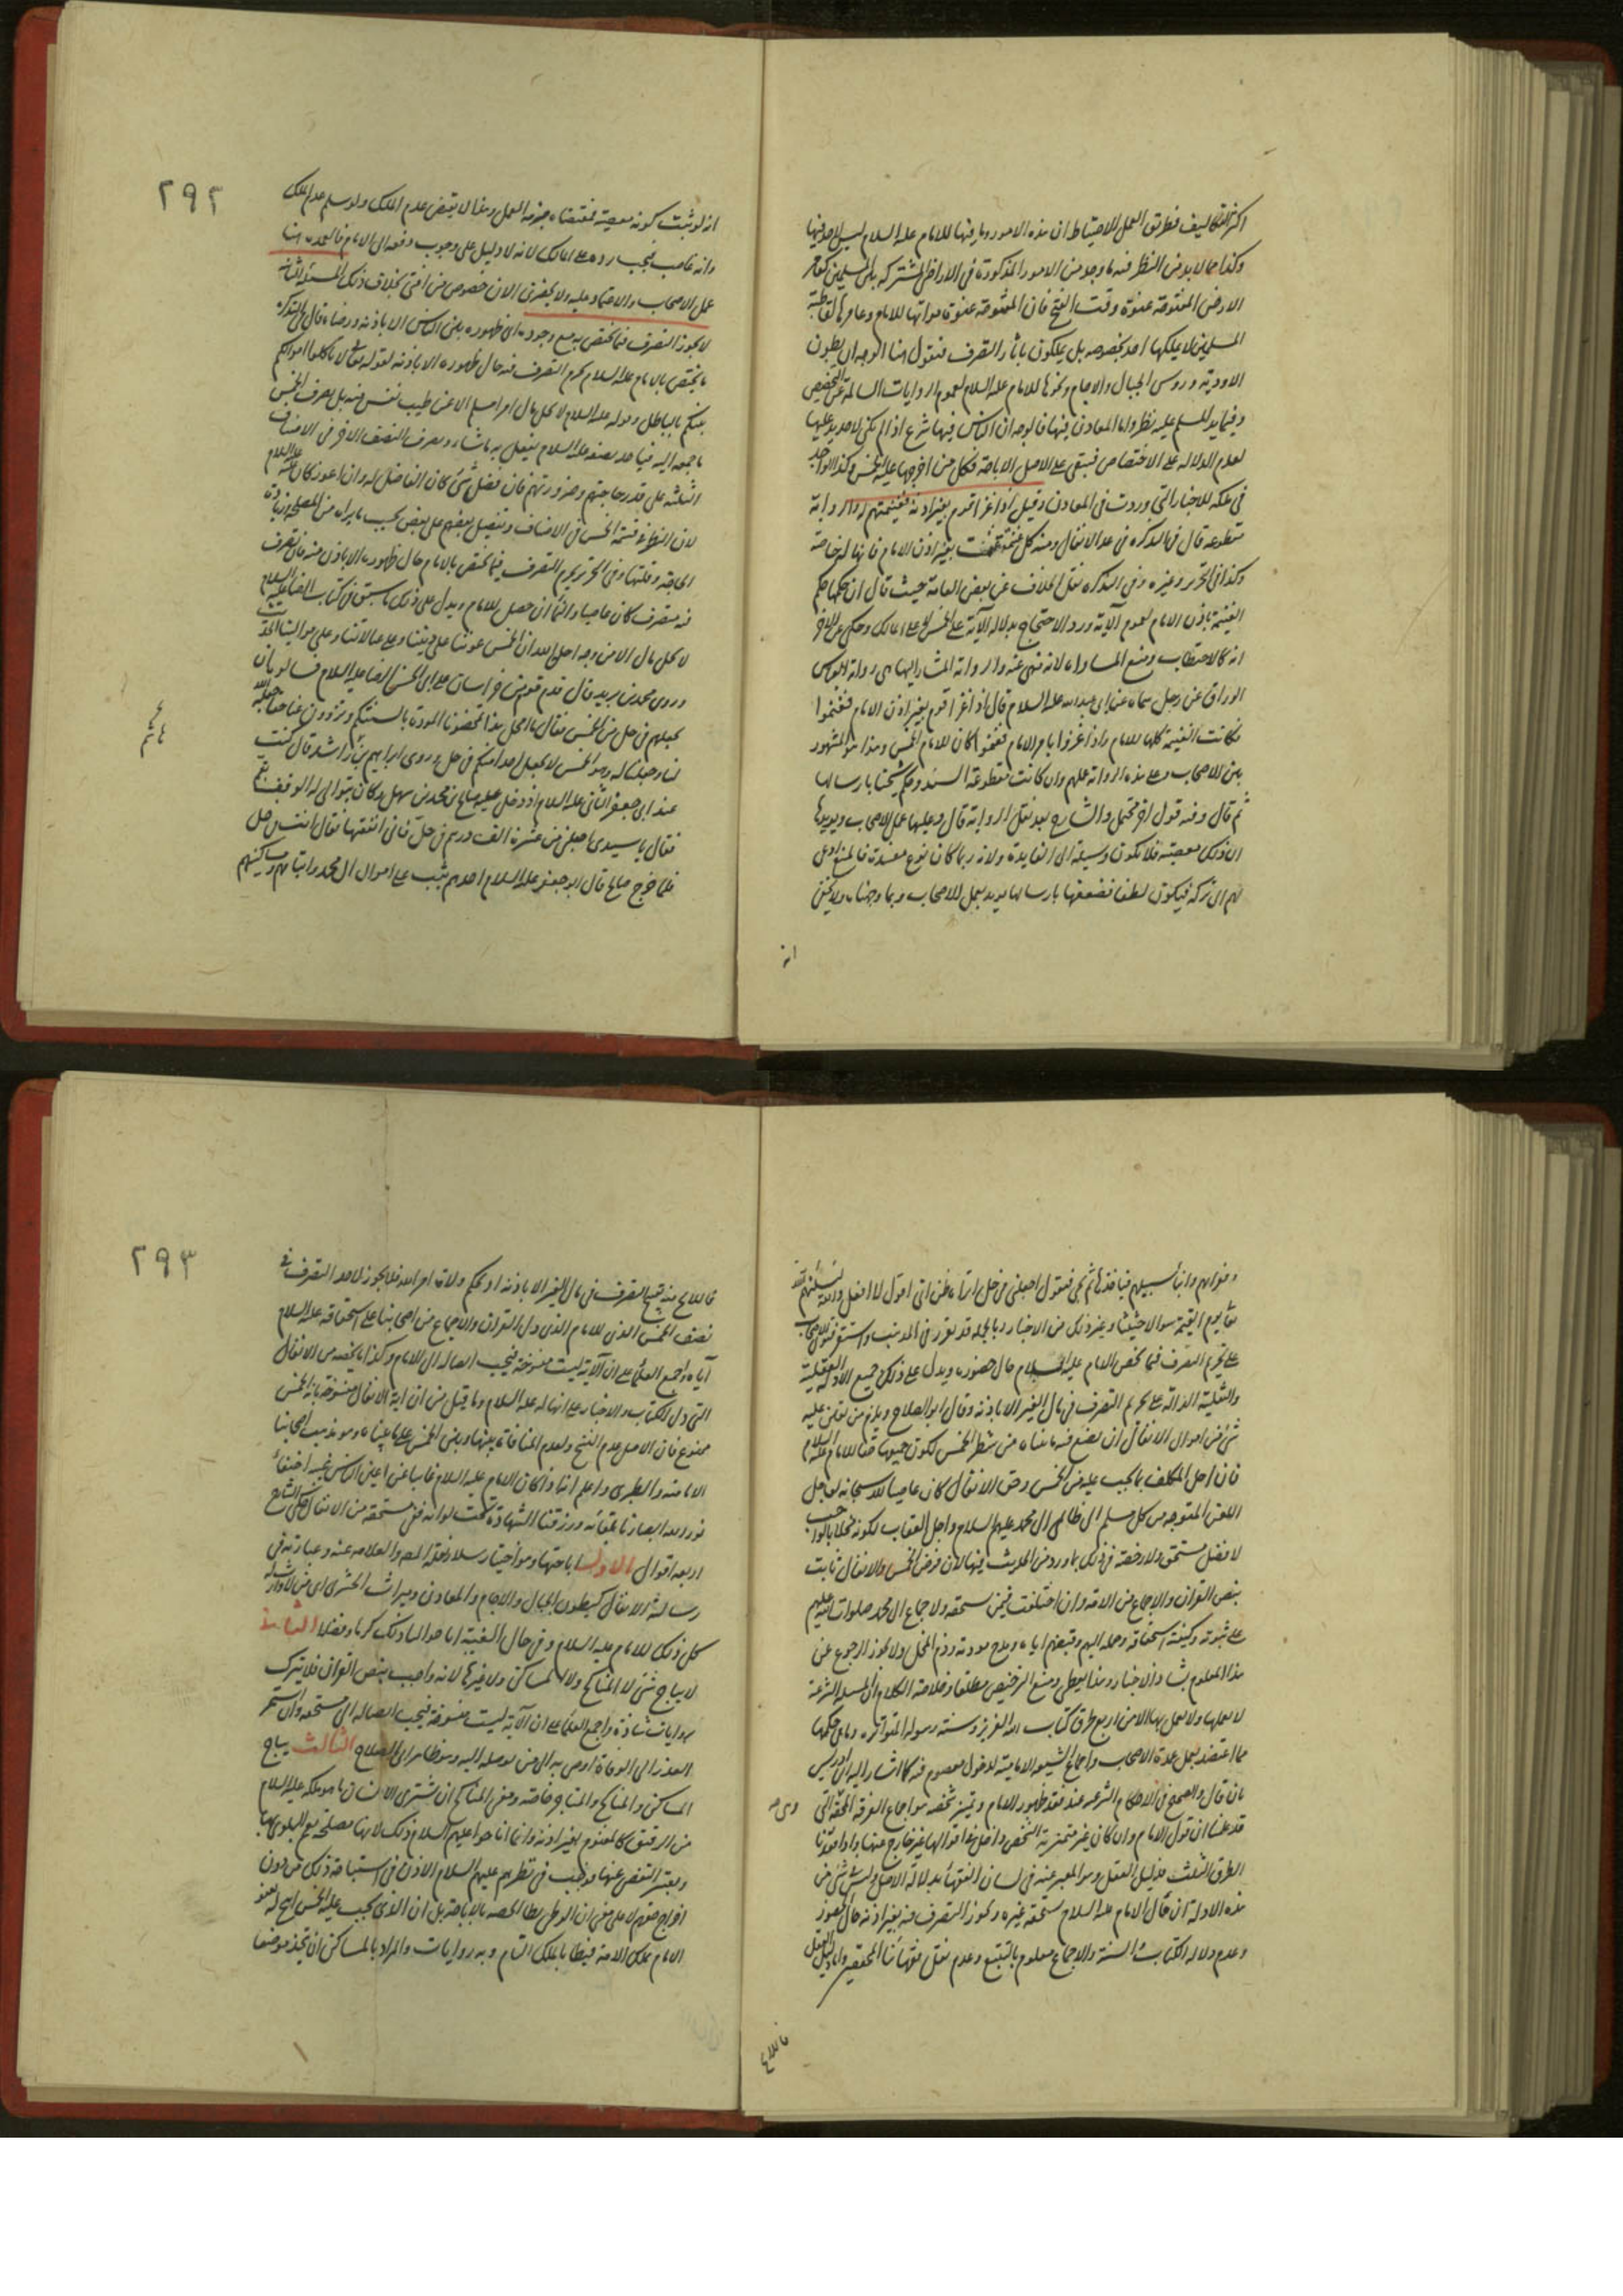 اكثر التكاليف فطريق العمل الاحتياط ان هذه الامور وما فيها للامام عليه السلام ليس لاحد فيها
وكذا مما لا بد من النظر فيه ما وجد من الامور المذكورة في الاراضي المشتركة بين المسلمين كما في
الارض المفتوحة عنوة وقت الفتح فان المفتوحة عنوة مواتها للامام وعامرها لقاطبة
المسلمين لا يملكها احد بخصوصه بل يملكون باثار التصرف فنقول هنا الوجه ان بطون
الاودية وروس الجبال والاجام ونحوها للامام عليه السلام لعموم الروايات السالمة عن المخصص
وفيما يد المسلم عليه نظر واما المعادن فيها فالوجه ان الناس فيها شرع اذا لم يكن لاحد يد عليها
لعدم الدلالة على الاختصاص فتبقى على الاصل الاباحة فكل من اخرجها عليه الخمس وكذا الواجد
في ملكه للاخبار التي وردت في المعادن وقيل اذا غزا قوم بغير اذنه فغنيمتهم له والرواية
مقطوعة قال في التذكرة في عد الانفال ومنه كل غنيمة غنمت بغير اذن الامام فانها له خاصة
وكذا في التحرير وغيره وفي التذكرة نقل الخلاف عن بعض العامة حيث قال ان حكمها حكم
الغنيمة باذن الامام لعموم الآية ورد الاحتجاج بدلالة الآية على الخمس لا على المالك وحكى عن الاخر
انه كالاحتطاب ومنع المساواة لانه منهي عنه والرواية المشار اليها هي رواية العباس
الوراق عن رجل سماه عن ابي عبد الله عليه السلام قال اذا غزا قوم بغير اذن الامام فغنموا
فكانت الغنيمة كلها للامام واذا غزوا بامر الامام فغنموا كان للامام الخمس وهذا هو المشهور
بين الاصحاب وعلى هذه الرواية عملهم وان كانت مقطوعة السند وحكم شيخنا بارسالها
ثم قال وفيه قول اخر محتمل والشارح بعد نقل الرواية قال وعليها عمل الاصحاب ويؤيدها
ان ذلك معصية فلا تكون وسيلة الى الفايدة ولانه ربما كان نوع مفسدة فالمنع ادعى
لهم الى تركه فيكون لطفا فضعفها بارسالها يؤيد بعمل الاصحاب وبما وجهناه ولا يخفى
انه
٢٩٢
انه لو ثبت كونه معصية فمقتضاه حرمة العمل وهذا لا يقتضي عدم الملك ولو سلم عدم الملك
وانه غاصب فيجب رده على المالك لانه لا دليل على وجوب دفعه الى الامام فالعمدة هنا
عمل الاصحاب والاعتماد عليه ولا يحضرني الان خصوص من افتى بخلاف ذلك المسئلة الثانية
لا يجوز التصرف فيما يختص به مع وجوده اي ظهوره بين الناس الا باذنه ورضاه قال في التذكرة
ما يختص بالامام عليه السلام يحرم التصرف فيه حال ظهوره الا باذنه لقوله تعالى لا تاكلوا اموالكم
بينكم بالباطل وقوله عليه السلام لا يحل مال امرء مسلم الا عن طيب نفس منه بل يصرف الخمس
باجمعه اليه فياخذ نصفه عليه السلام يفعل به ما شاء ويصرف النصف الاخر في الاصناف
الثلثة على قدر حاجتهم وضرورتهم فان فضل شيء كان الفاضل له وان اعوز كان عليه عليه السلام
لان النظر في قسمة الخمس في الاصناف وتفضيل بعضهم على بعض بحسب ما يراه من المصلحة وزيادة
الحاجة وقلتها وفي التحرير يحرم التصرف فيما يختص بالامام حال ظهوره الا باذن منه فان تصرف
فيه متصرف كان غاصبا والنماء ان حصل للامام ويدل على ذلك ما سبق في كتاب الرضا عليه السلام
لا يحل مال الا من وجه احله الله ان الخمس عوننا على ديننا وعلى عيالاتنا وعلى موالينا الحديث
وروى محمد بن يزيد قال قدم قوم من خراسان على ابي الحسن الرضا عليه السلام فسالوه ان
يجعلهم في حل من الخمس فقال ما امحل هذا تمحضونا المودة بالسنتكم وتزوون عنا حقا جعله الله
لنا وجعلنا له وهو الخمس لا نجعل احدا منكم في حل وروى ابراهيم بن هاشم قال كنت
عند ابي جعفر الثاني عليه السلام اذ دخل عليه صالح بن محمد بن سهل وكان يتولى له الوقف بقم
فقال يا سيدي اجعلني من عشرة الف درهم في حل فاني انفقتها فقال انت في حل
فلما خرج صالح قال ابو جعفر عليه السلام احدهم يثب على اموال ال محمد وايتامهم ومساكينهم
وفقرائهم وابناء سبيلهم فياخذها ثم يجيء فيقول اجعلني في حل اتراه ظن اني اقول لا افعل والله ليسئلنهم الله
تعالى يوم القيمة سوالا حثيثا وغير ذلك من الاخبار وبالجملة قد تقرر في المذهب واستقر فتوى الاصحاب
على تحريم التصرف فيما يخص الامام عليه السلام حال حضوره ويدل على ذلك جميع الادلة العقلية
والنقلية الدالة على تحريم التصرف في مال الغير الا باذنه وقال ابو الصلاح ويلزم من تعين عليه
شيء من اموال الانفال ان يصنع فيه ما بيناه من شطر الخمس لكون جميعها حقا للامام عليه السلام
فان اخل المكلف بما يجب عليه من الخمس وحق الانفال كان عاصيا لله سبحانه لعاجل
اللعن المتوجه من كل مسلم الى ظالمي ال محمد عليهم السلام واجل العقاب لكونه مخلا بالواجب
لافضل مستحق ولا رخصة في ذلك بما ورد من الحديث فيها لان فرض الخمس والانفال ثابت
بنص القران والاجماع من الامة وان اختلفت فيمن يستحقه ولاجماع ال محمد صلوات الله عليهم
على ثبوته وكيفية استحقاقه وحمله اليهم وقبضهم اياه ومدح مؤديه وذم المخل ولا يجوز الرجوع عن
هذا المعلوم بشاذ الاخبار وهذا يعطي ومنع الترخيص مطلقا وخلاصة الكلام ان المسئلة الشرعية
لا نعلمها ولا نعمل بها الا من اربع طرق كتاب الله العزيز وسنة رسوله المتواترة وما في حكمها
مما اعتضد بعمل عمدة الاصحاب واجماع الشيعة الامامية لدخول معصوم فيه كما اشار اليه ابن ادريس
بان قال والصحيح في الاحكام الشرعية عند فقد ظهور الامام وتميز شخصه هو اجماع الفرقة المحقة التي
قد علمنا ان قول الامام وان كان غير متميز منه الشخص داخل في اقوالها غير خارج عنها واذا فقدنا
الطرق الثلث فدليل العقل وهو المعبر عنه في لسان الفقهاء بدلالة الاصل وليس في شيء من
هذه الادلة ان مال الامام عليه السلام يستحقه غيره ويجوز التصرف فيه بغير اذنه حال العوز
وعدم دلالة الكتاب والسنة والاجماع معلوم بالتتبع وعدم نقل فقهائنا المحققين واما دليل العقل
فالملاح
٢٩٣
فالملاح منه قبح التصرف في مال الغير الا باذنه او بحكم ولاية امر الله فلا يجوز لاحد التصرف في
نصف الخمس الذي للامام الذي دل القران والاجماع من اصحابنا على استحقاقه عليه السلام
اياه واجمع العلماء على ان الآية ليست منسوخة فيجب ايصاله الى الامام وكذا ما يخصه من الانفال
التي دل الكتاب والاخبار على انها له عليه السلام وما قيل من ان اية الانفال منسوخة باية الخمس
ممنوع فان الاصل عدم النسخ ولعدم المنافاة بينها وبين الخمس على ما بيناه وهو مذهب اصحابنا
الامامية والطبري واعلم انه اذا كان الامام عليه السلام غائبا عن اعين الناس غيبة اختفاء
نور الله ابصارنا بلقائه ورزقنا الشهادة تحت لوائه ففي مستحقه من الانفال حكى الشارح
اربعة اقوال الاول اباحتها وهو اختيار سلار واطلق المص والعلامة عنه وعبارته في
رسالته والانفال كبطون الجبال والاجام والمعادن وميراث الحشري اي من لا وارث له
كل ذلك للامام عليه السلام وفي حال الغيبة اباحوا لنا ذلك كرما وفضلا الثاني
لا يباح شيء لا المناكح ولا المساكن ولا غيرها لانه واجب بنص القران فلا يترك
بروايات شاذة واجمع العلماء على ان الآية ليست منسوخة فيجب ايصاله الى مستحقه وان استمر
العذر الى الوفاة اوصى به الى من يوصله اليه وهو ظاهر ابي الصلاح الثالث يباح
المساكن والمناكح والمتاجر خاصة ومعنى المناكح ان يشتري الانسان ما هو ملكه عليه السلام
من الرقيق كالمغنوم بغير اذنه وانما اباحوا عليهم السلام ذلك لانها مصلحة تعم البلوى بها
ويعسر التفصي عنها فوجب في نظرهم عليهم السلام الاذن في استباحة ذلك من دون
اخراج حقهم لا على معنى ان الوطي بملك الحصة بالاباحة بل ان الذي يجب عليه الخمس ابيح له بعفو
الامام بملك الامة فيطا بالملك التام وبه روايات والمراد بالمساكن ان يتخذ موضعا